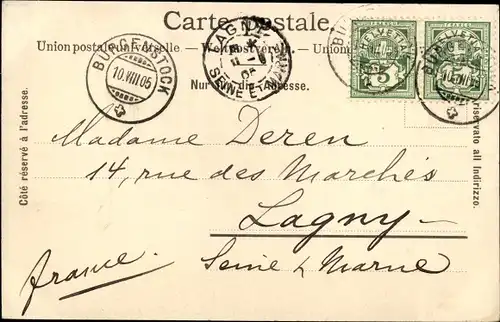 Carte Postale.
Union postale universelle. — Weltpostverein. — Union
Nur für die Adresse.
BÜRGENSTOCK
10.VIII.05
LAGNY
SEINE ET MARNE
HELVETIA
5
HELVETIA
Côté réservé à l'adresse.
riservato all Indirizzo.
Madame Deren
14, rue des Marchés
Lagny
Seine & Marne
france.